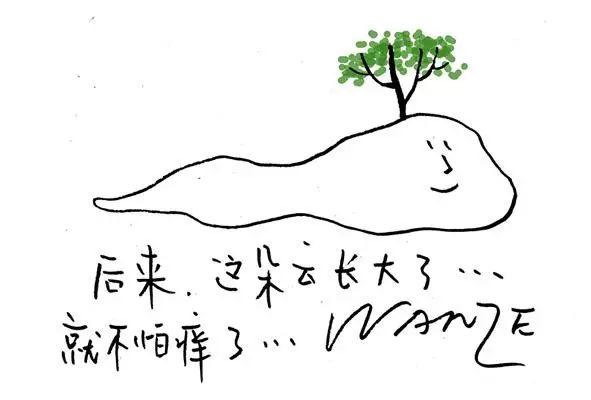 后来，这朵云长大了...
就不怕痒了... WANZE